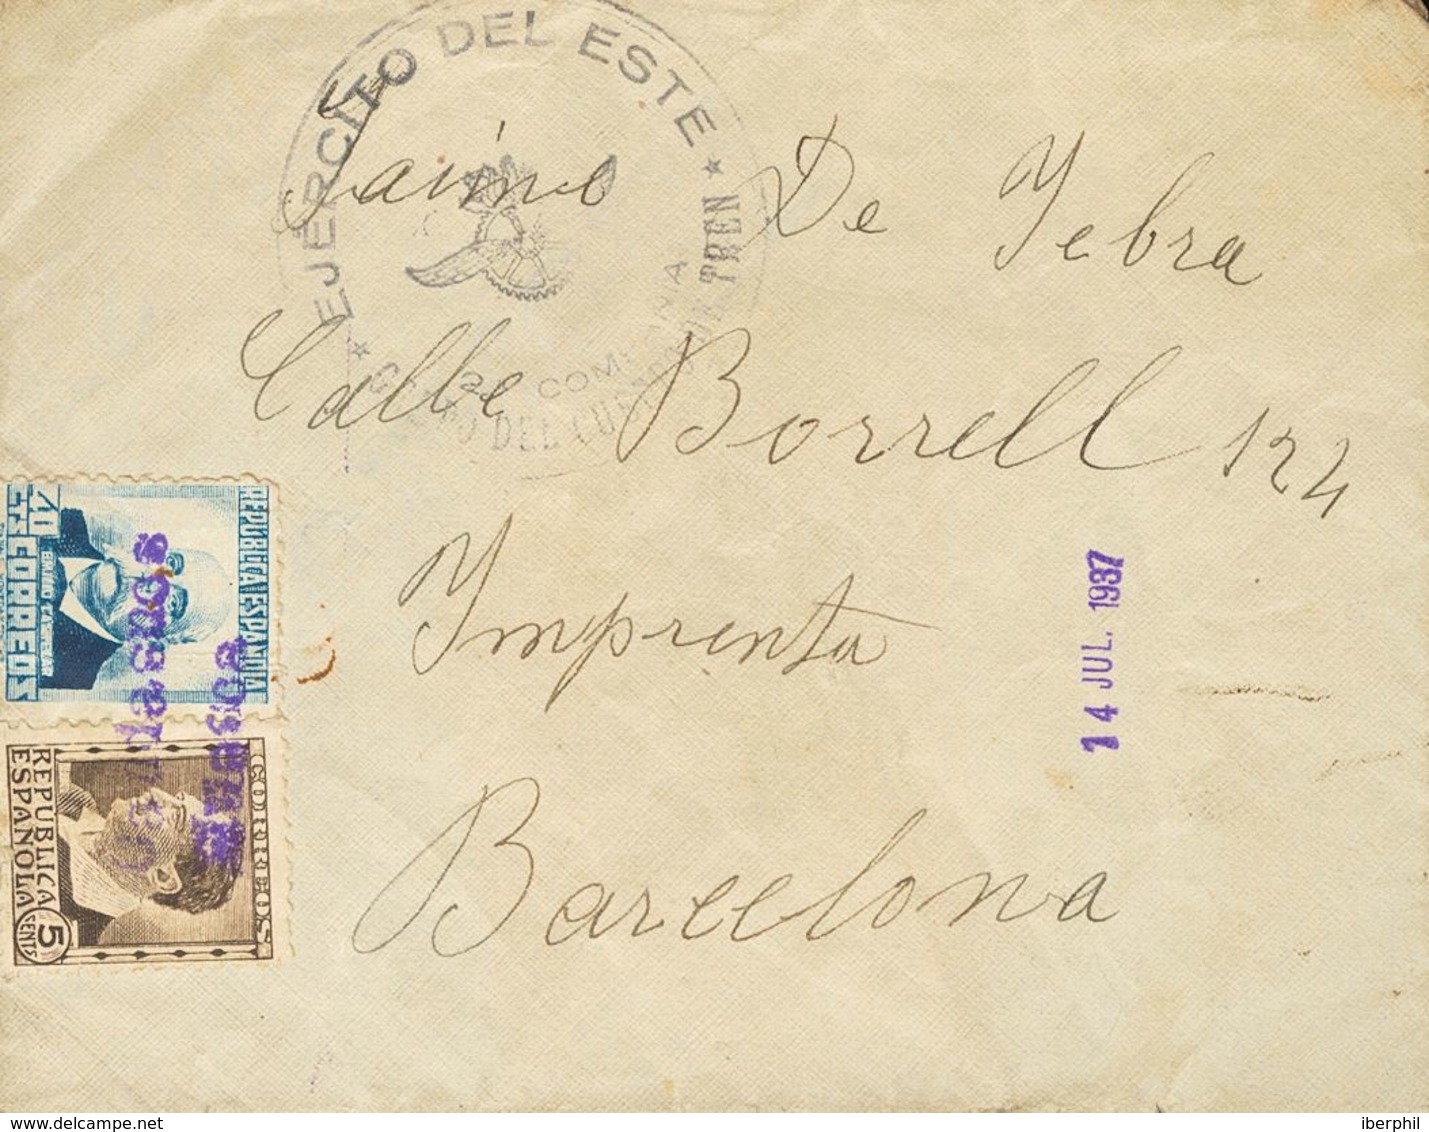 EJERCITO DEL ESTE
DEL
TREN
Jaime De Yebra
Calle Borrell 124
Imprenta
Barcelona
14 JUL. 1937
40 CTS CORREOS
EMILIO CASTELAR
REPUBLICA ESPAÑOLA
CORREOS
REPUBLICA
ESPAÑOLA
5
CENTS
delcampe.net
iberphil